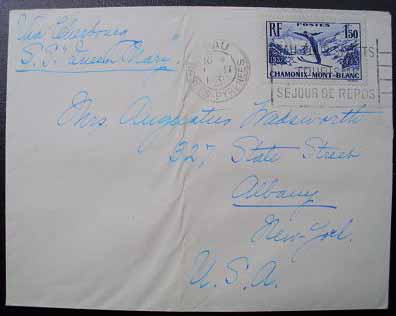 Via Cherbourg
S.S. "Queen Mary"
PAU
BSES PYRENEES
POSTES
RF 1f50
CHAMONIX-MONT-BLANC
SEJOUR DE REPOS
Mrs. Augustus Wadsworth
327, State Street
Albany
New-York.
U.S.A.